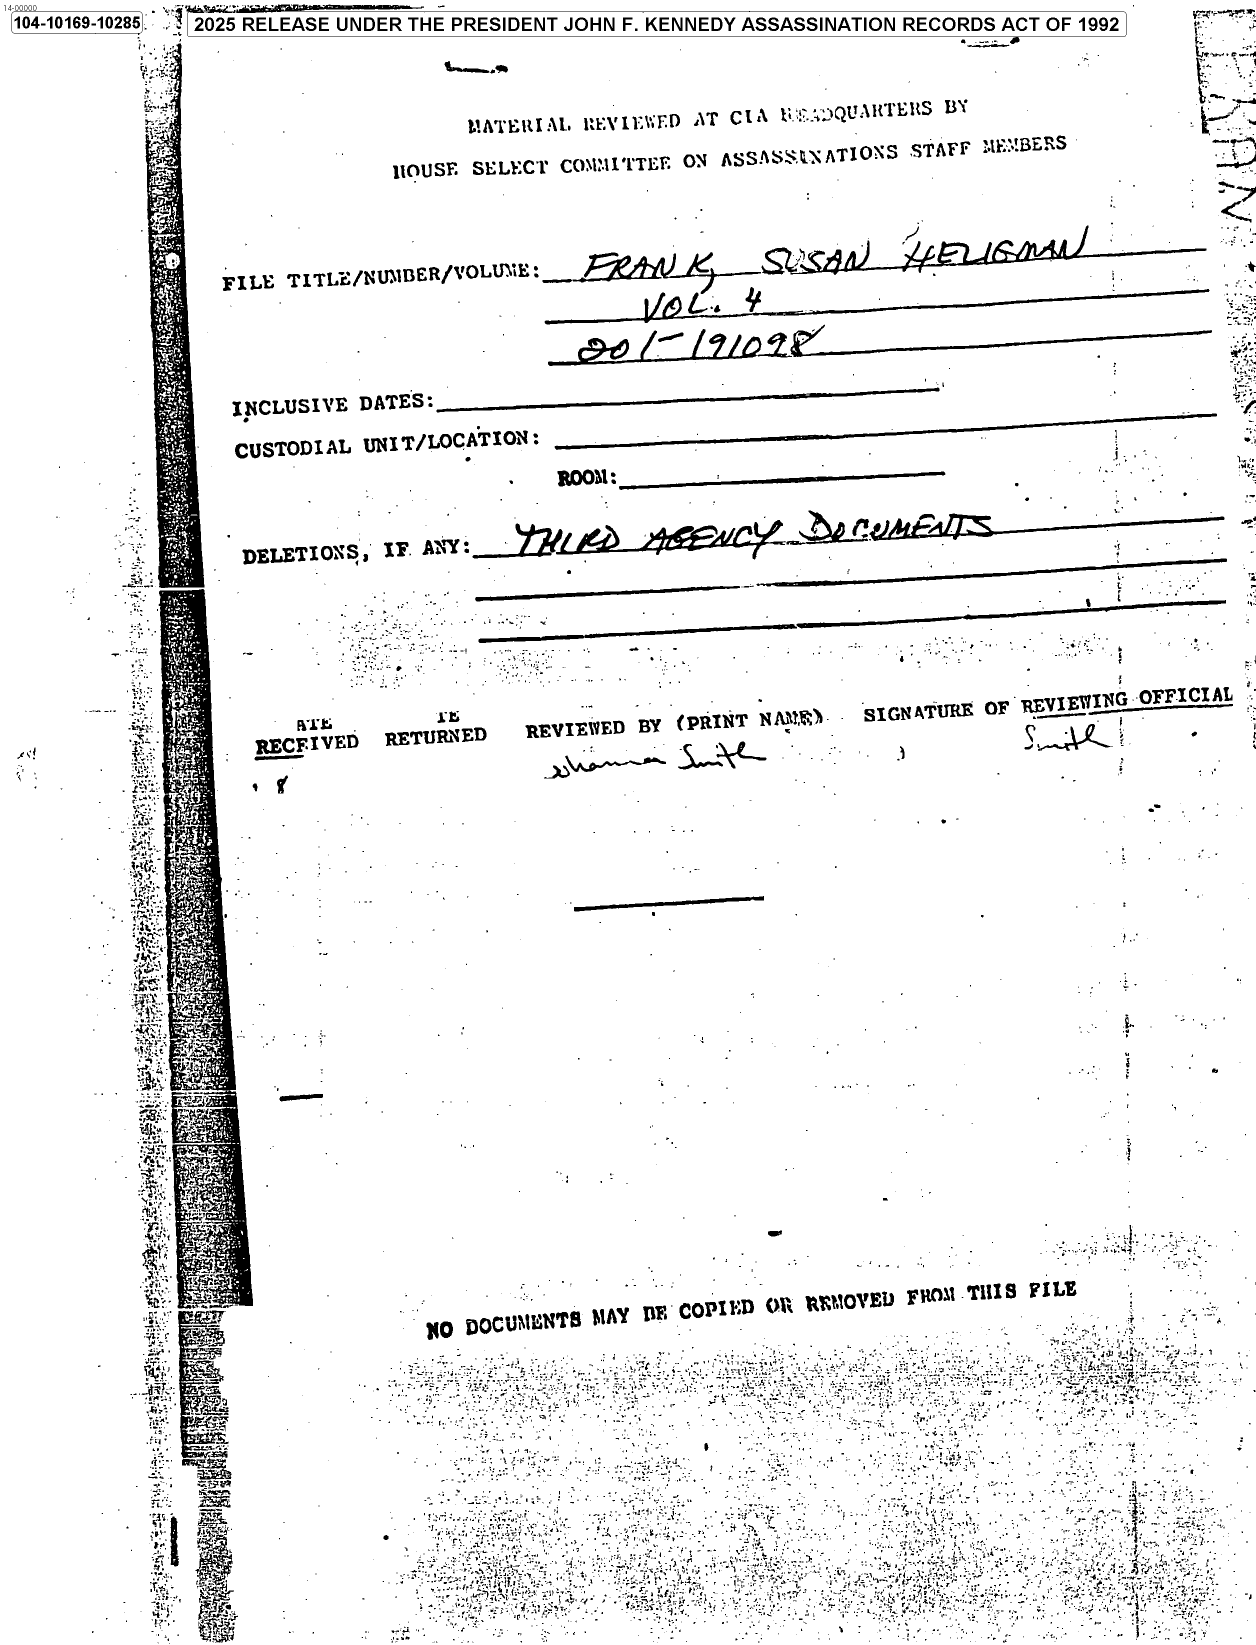 14-00000
104-10169-10285
2025 RELEASE UNDER THE PRESIDENT JOHN F. KENNEDY ASSASSINATION RECORDS ACT OF 1992
MATERIAL REVIEWED AT CIA HEADQUARTERS BY
HOUSE SELECT COMMITTEE ON ASSASSINATIONS STAFF MEMBERS
FILE TITLE/NUMBER/VOLUME: FRANK, SUSAN HELIGMAN
VOL. 4
201-191098
INCLUSIVE DATES:
CUSTODIAL UNIT/LOCATION:
ROOM:
DELETIONS, IF ANY: THIRD AGENCY DOCUMENTS
RECEIVED RETURNED REVIEWED BY (PRINT NAME) SIGNATURE OF REVIEWING OFFICIAL
Smith Smith
8
NO DOCUMENTS MAY BE COPIED OR REMOVED FROM THIS FILE